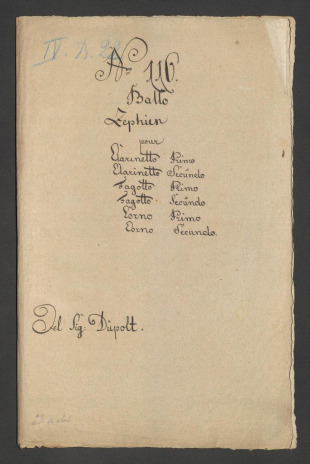 IV. A. 22
No 116.
Ballo
Zephien
pour
Clarinetto Primo
Clarinetto Secundo
Fagotto Primo
Fagotto Secundo
Corno Primo
Corno Secundo.
Del Sig: Dupolt.